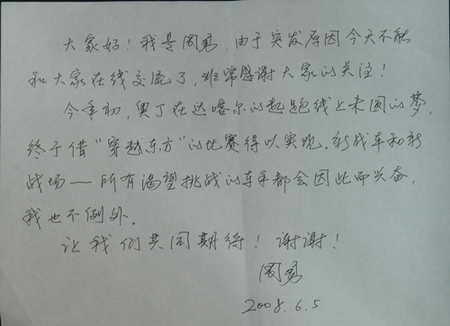 大家好！我是周勇，由于突发原因今天不能
和大家在线交流了，非常感谢大家的关注！
今年初，奥丁在达喀尔的起跑线上未圆的梦，
终于借“穿越东方”的比赛得以实现。新战车和新
战场——所有渴望挑战的车手都会因此而兴奋，
我也不例外。
让我们共同期待！谢谢！
周勇
2008.6.5